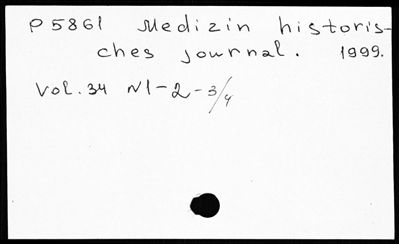 P5861 Medizin historis-
ches journal. 1999.
Vol. 34 N1-2-3/4